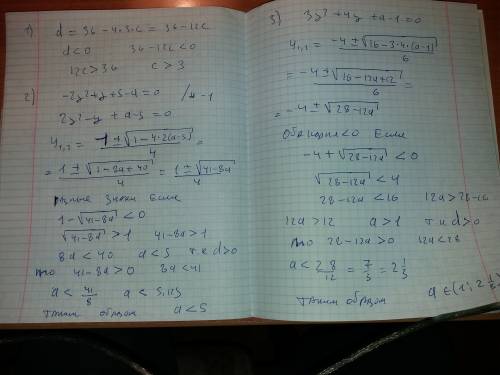 1) d = 36 - 4·3·c = 36 - 12c
d < 0 36 - 12c < 0
12c > 36 c > 3
2) -2y² + y + 5 - a = 0 /* -1
2y² - y + a - 5 = 0
y₁,₂ = (1 ± √(1 - 4·2(a-5)))/4 =
= (1 ± √(1 - 8a + 40))/4 = (1 ± √(41 - 8a))/4
разные знаки если
1 - √(41 - 8a) < 0
√(41 - 8a) > 1 41 - 8a > 1
8a < 40 a < 5 т.к d > 0
то 41 - 8a > 0 8a < 41
a < 41/8 a < 5,125
таким образом a < 5
3) 3y² + 4y + a - 1 = 0
y₁,₂ = (-4 ± √(16 - 3·4·(a-1)))/6
= (-4 ± √(16 - 12a + 12))/6 =
= -4 ± √(28 - 12a)
Оба корня < 0 если
-4 + √(28 - 12a) < 0
√(28 - 12a) < 4
28 - 12a < 16 12a > 28 - 16
12a > 12 a > 1 т.к d > 0
то 28 - 12a > 0 12a < 28
a < 28/12 = 7/3 = 2 1/3
таким образом a ∈ (1; 2 1/3)